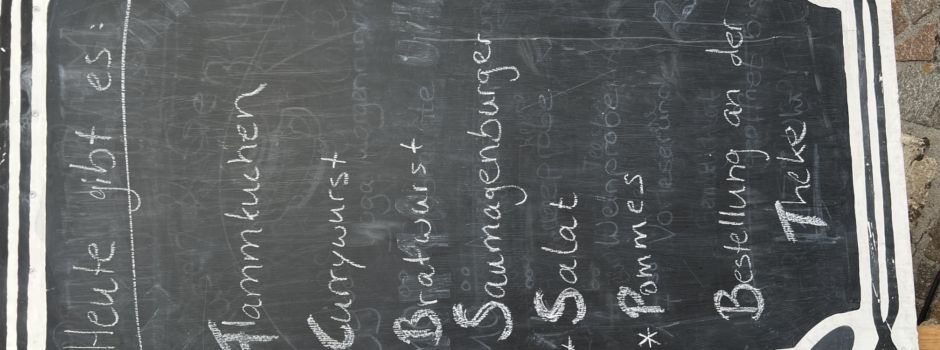 Heute gibt es:
Flammkuchen
Currywurst
Bratwurst
Saumagenburger
* Salat
* Pommes
Bestellung an der
Theke